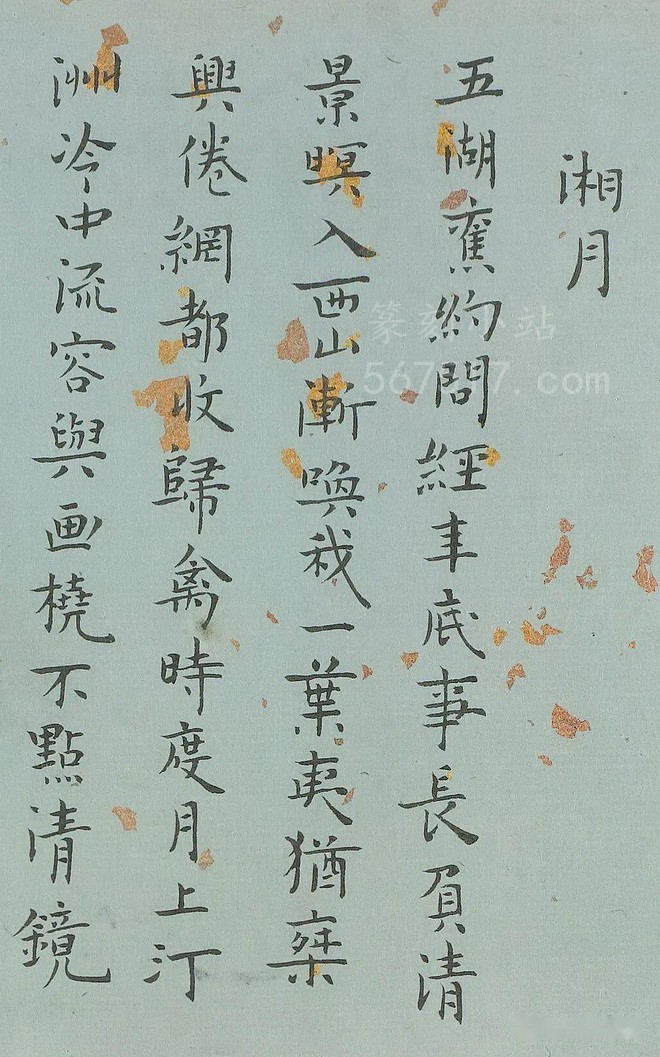 湘月
五湖舊約問經年底事長負清
景暝入西山漸喚我一葉夷猶椉
興倦網都收歸禽時度月上汀
洲冷中流容與画橈不點清鏡
篆刻小站